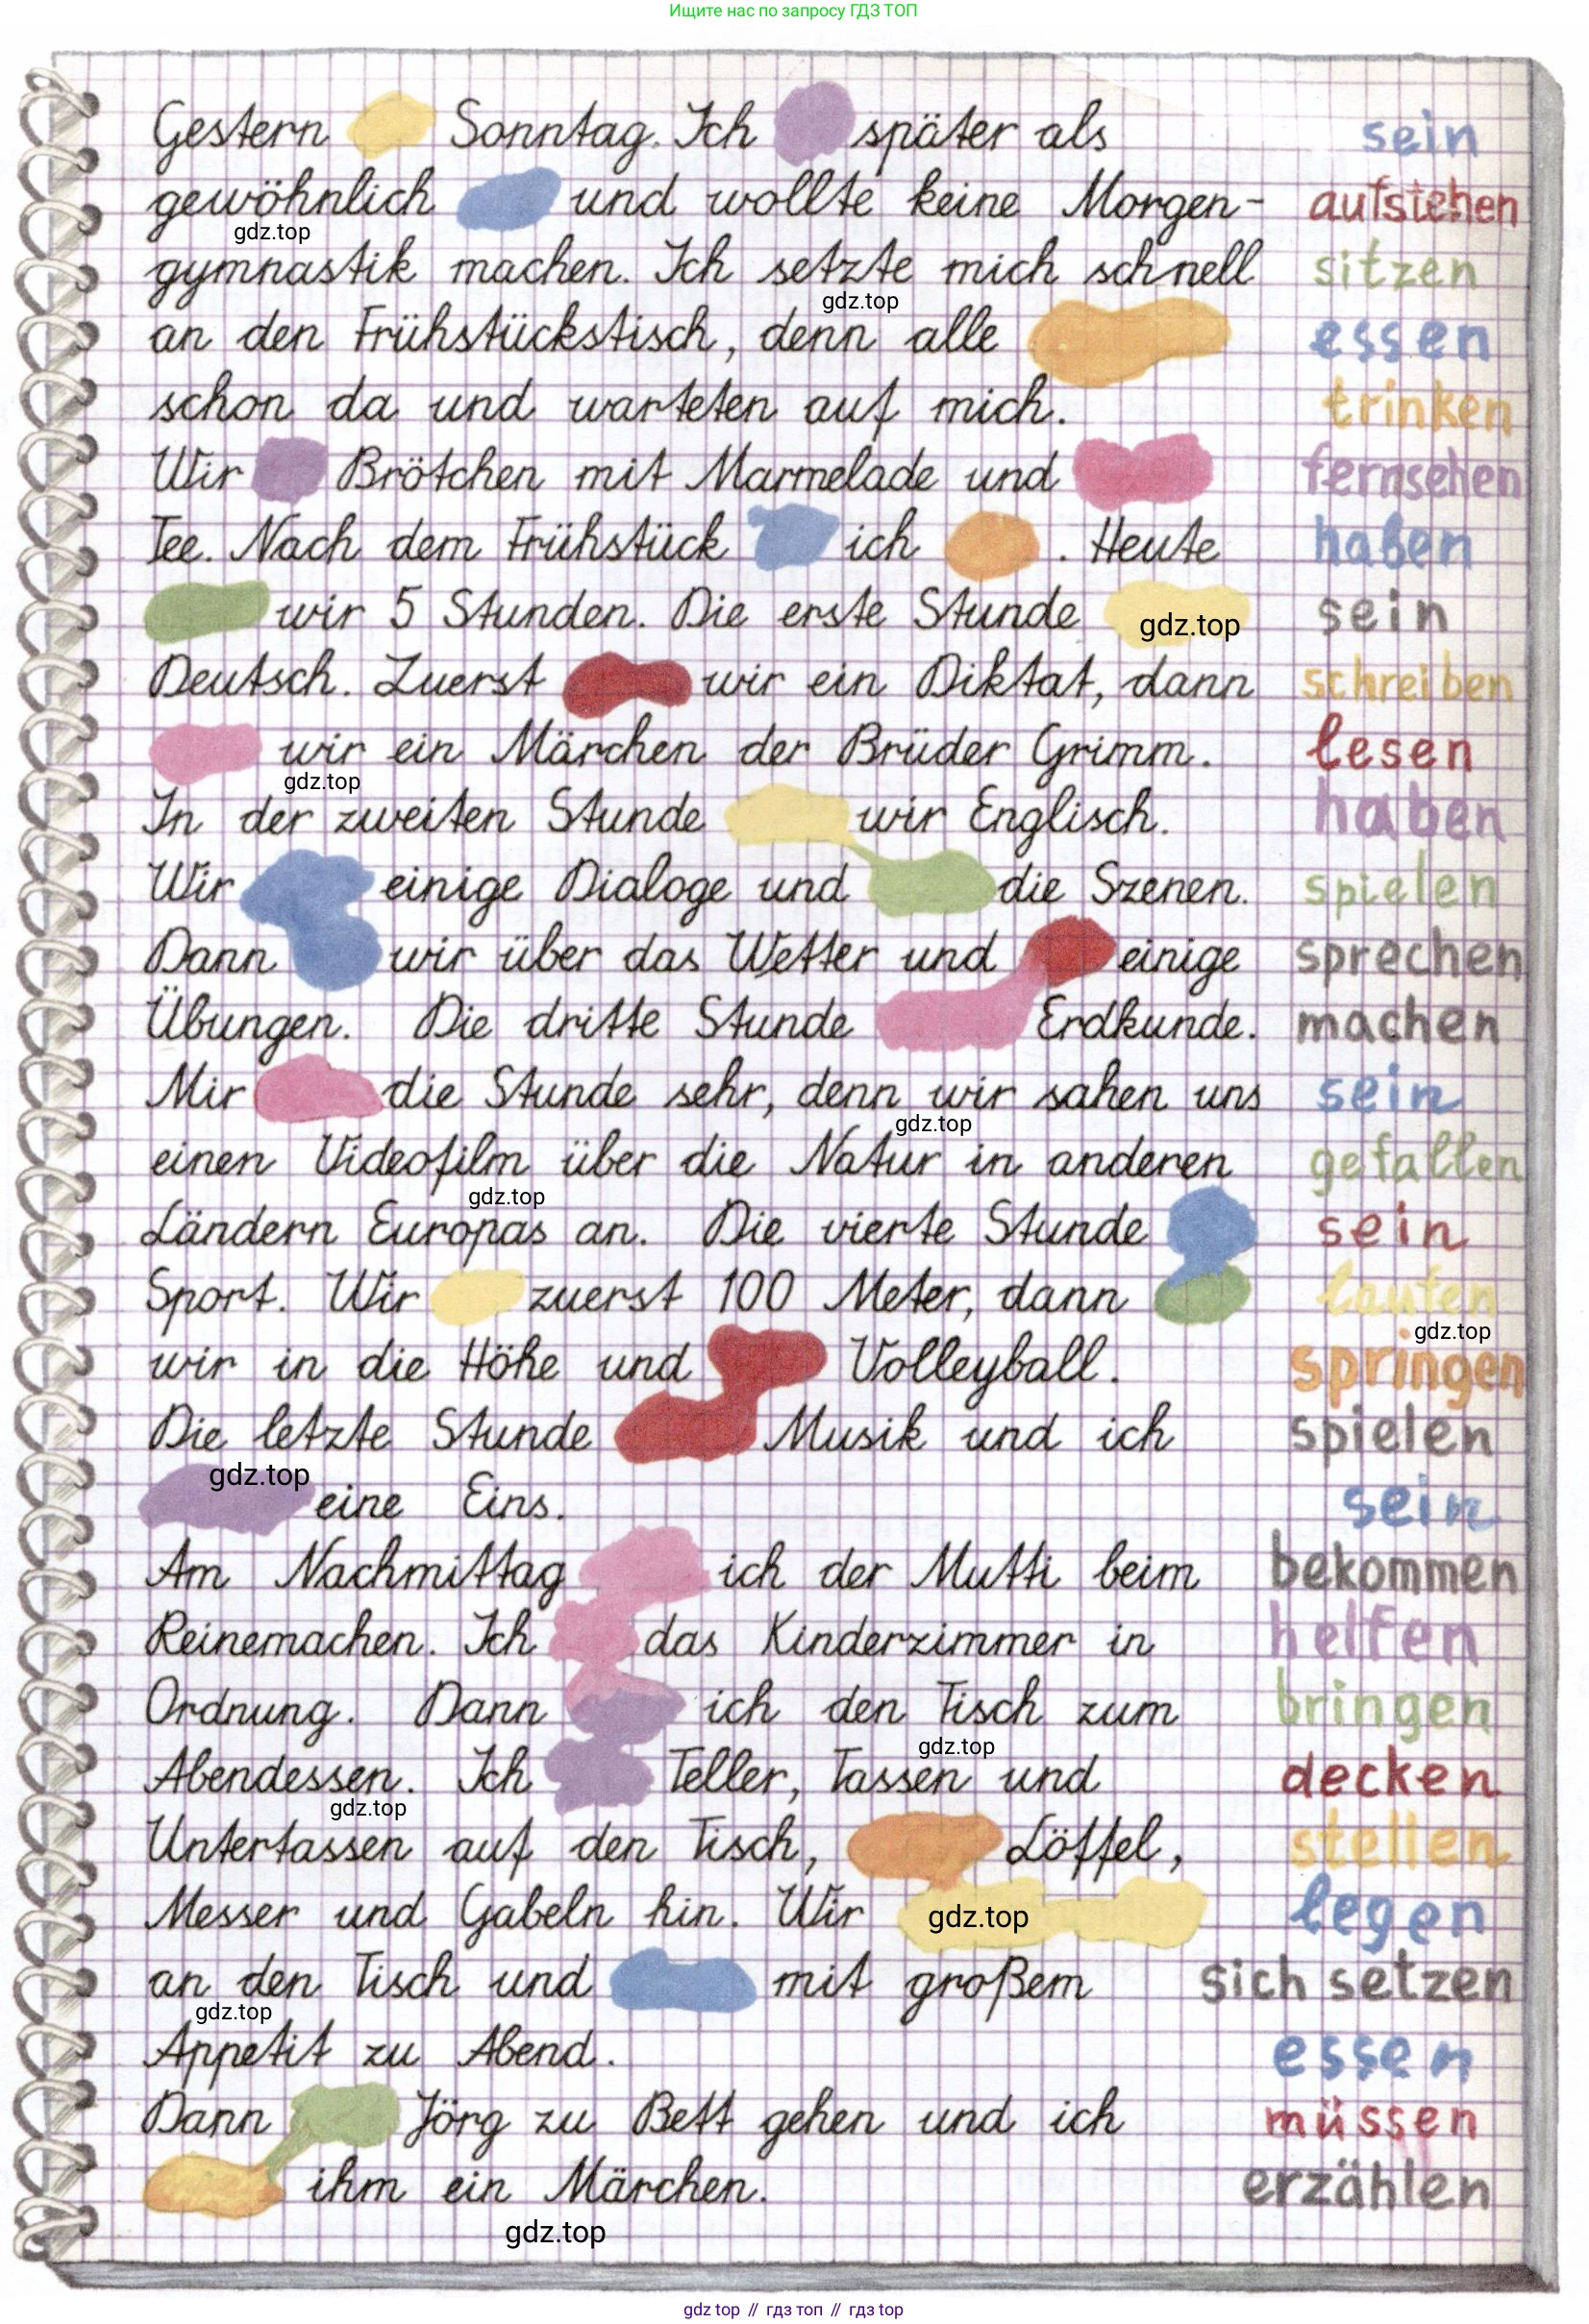 Ищите нас по запросу ГДЗ ТОП
Gestern Sonntag. Ich später als sein
gewöhnlich und wollte keine Morgen- aufstehen
gdz.top
gymnastik machen. Ich setzte mich schnell sitzen
gdz.top
an den Frühstückstisch, denn alle essen
schon da und warteten auf mich. trinken
Wir Brötchen mit Marmelade und fernsehen
Tee. Nach dem Frühstück ich . Heute haben
wir 5 Stunden. Die erste Stunde gdz.top sein
Deutsch. Zuerst wir ein Diktat, dann schreiben
wir ein Märchen der Brüder Grimm. lesen
gdz.top
In der zweiten Stunde wir Englisch. haben
Wir einige Dialoge und die Szenen. spielen
Dann wir über das Wetter und einige sprechen
Übungen. Die dritte Stunde Erdkunde. machen
Mir die Stunde sehr, denn wir sahen uns sein
gdz.top
einen Videofilm über die Natur in anderen gefallen
gdz.top
Ländern Europas an. Die vierte Stunde sein
Sport. Wir zuerst 100 Meter, dann laufen
gdz.top
wir in die Höhe und Volleyball. springen
Die letzte Stunde Musik und ich spielen
gdz.top eine Eins. sein
Am Nachmittag ich der Mutti beim bekommen
Reinemachen. Ich das Kinderzimmer in helfen
Ordnung. Dann ich den Tisch zum bringen
gdz.top
Abendessen. Ich Teller, Tassen und decken
gdz.top
Untertassen auf den Tisch, Löffel, stellen
Messer und Gabeln hin. Wir gdz.top legen
an den Tisch und mit großem sich setzen
gdz.top
Appetit zu Abend. essen
Dann Jörg zu Bett gehen und ich müssen
ihm ein Märchen. erzählen
gdz.top
gdz top // гдз топ // гдз top